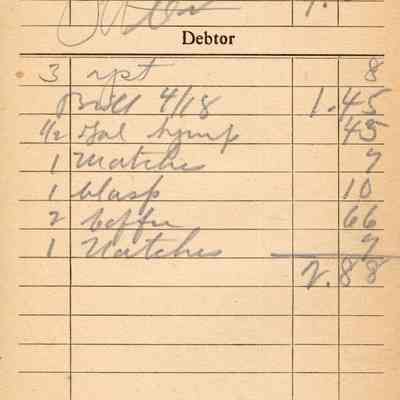 Debtor
3 8
Bill 4/18 1.45
1/2 Gal 45
1 Matches 7
1 10
2 Coffee 66
1 Matches 7
2.88